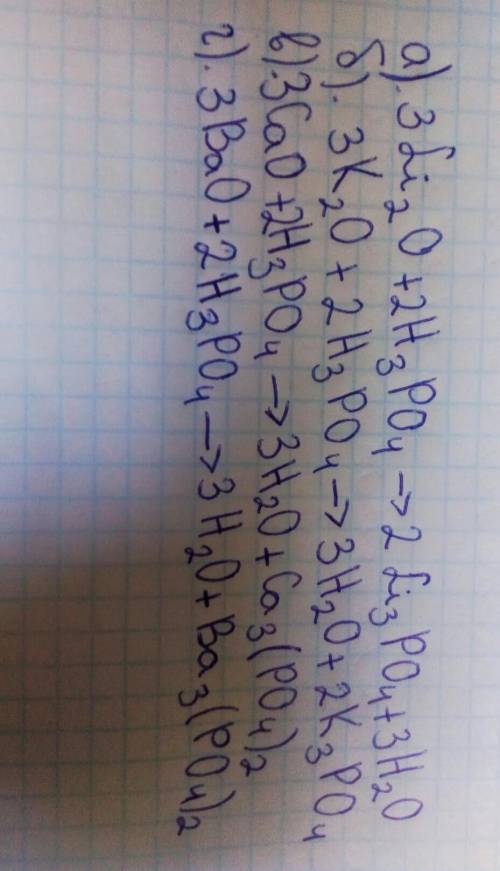 а). 3Li₂O + 2H₃PO₄ → 2Li₃PO₄ + 3H₂O
б). 3K₂O + 2H₃PO₄ → 3H₂O + 2K₃PO₄
в). 3CaO + 2H₃PO₄ → 3H₂O + Ca₃(PO₄)₂
г). 3BaO + 2H₃PO₄ → 3H₂O + Ba₃(PO₄)₂